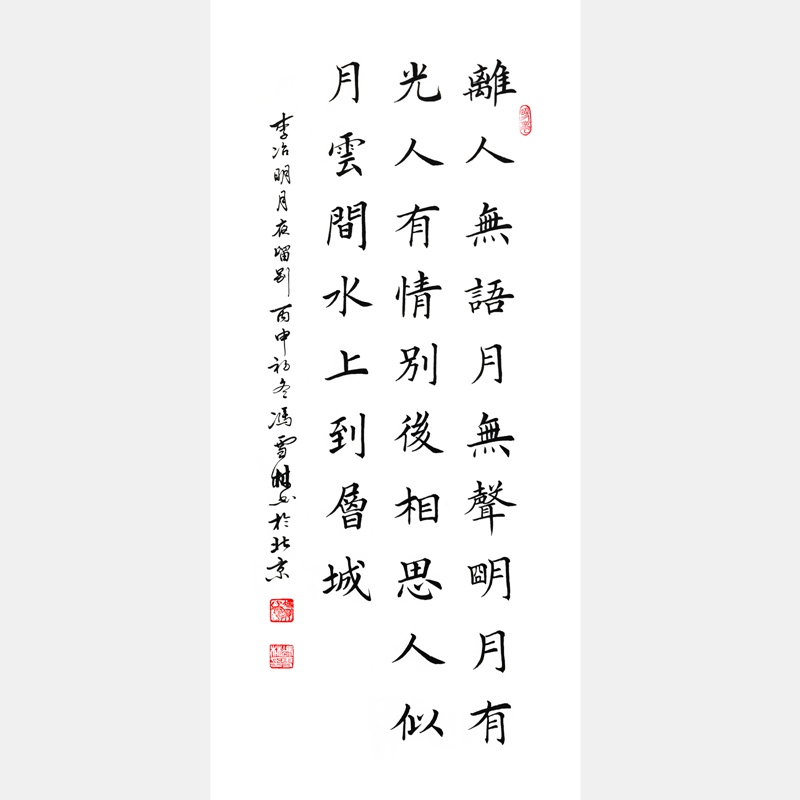 離人無語月無聲明月有
光人有情別後相思人似
月雲間水上到層城
李冶明月夜留别 丙申初冬馮雪林书於北京